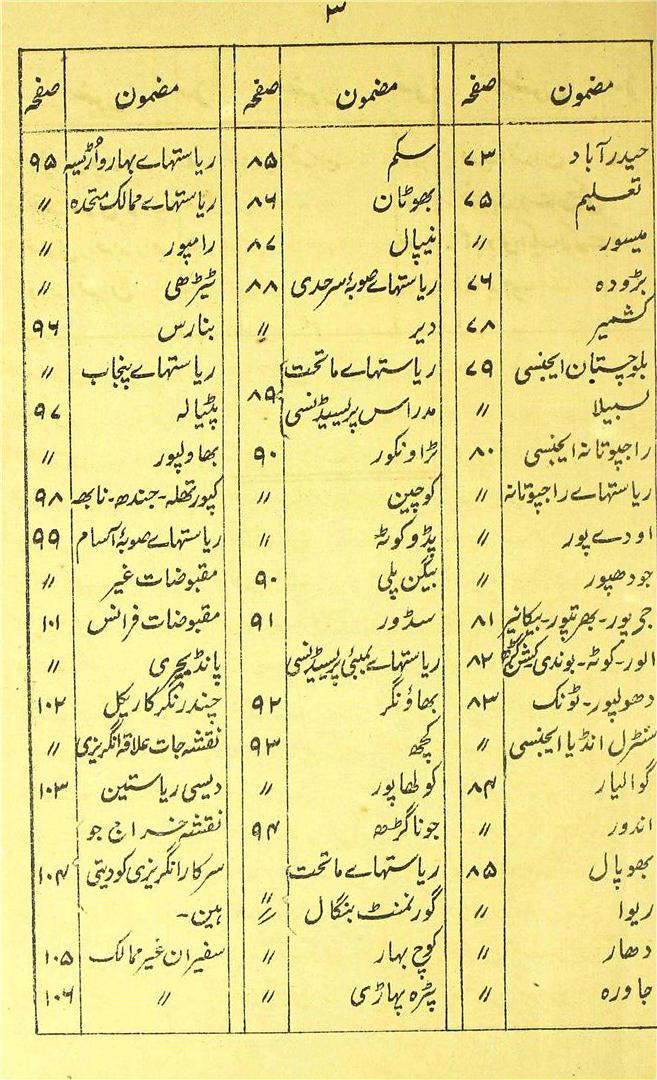 ۳
مضمون صفحہ مضمون صفحہ مضمون صفحہ
حیدرآباد ۷۳ سکم ۸۵ ریاستہاے بہار واڑیسہ ۹۵
تعلیم ۷۵ بھوٹان ۸۶ ریاستہاے ممالک متحدہ //
میسور // نیپال ۸۷ رامپور //
بڑودہ ۷۶ ریاستہاے صوبۂ سرحدی ۸۸ ٹیڑھی //
کشمیر ۷۸ دیر // بنارس ۹۶
بلوچستان ایجنسی ۷۹ ریاستہاے ماتحت ۸۹ ریاستہاے پنجاب //
لسبیلا // مدراس پریسیڈنسی پٹیالہ ۹۷
راجپوتانہ ایجنسی ۸۰ ٹراونکور ۹۰ بھاولپور //
ریاستہاے راجپوتانہ // کوچین // کپورتھلہ۔جندھ۔نابھہ ۹۸
اودے پور // پڈوکوٹہ // ریاستہاے صوبۂ آسام ۹۹
جودھپور // بیگن پلی ۹۰ مقبوضات غیر //
جی پور۔بھرتپور۔بیکانیر ۸۱ سڈور ۹۱ مقبوضات فرانس ۱۰۱
الور۔کوٹہ۔بوندی۔کیشن گڑھ ۸۲ ریاستہاے بمبئی پریسیڈنسی پانڈیچری //
دھولپور۔ٹونک ۸۳ بھاؤنگر ۹۲ چندرنگر کاریکل ۱۰۲
سنٹرل انڈیا ایجنسی // کچھ ۹۳ نقشہ جات علاقہ انگریزی //
گوالیار ۸۴ کولھاپور // دیسی ریاستین ۱۰۳
اندور // جوناگڑھ ۹۴ نقشہ خراج جو
بھوپال ۸۵ ریاستہاے ماتحت // سرکار انگریزی کو دیتی ۱۰۴
ریوا // گورنمنٹ بنگال // ہین۔
دھار // کوچ بہار // سفیران غیر ممالک ۱۰۵
جاورہ // پٹرہ پہاڑی // // ۱۰۶